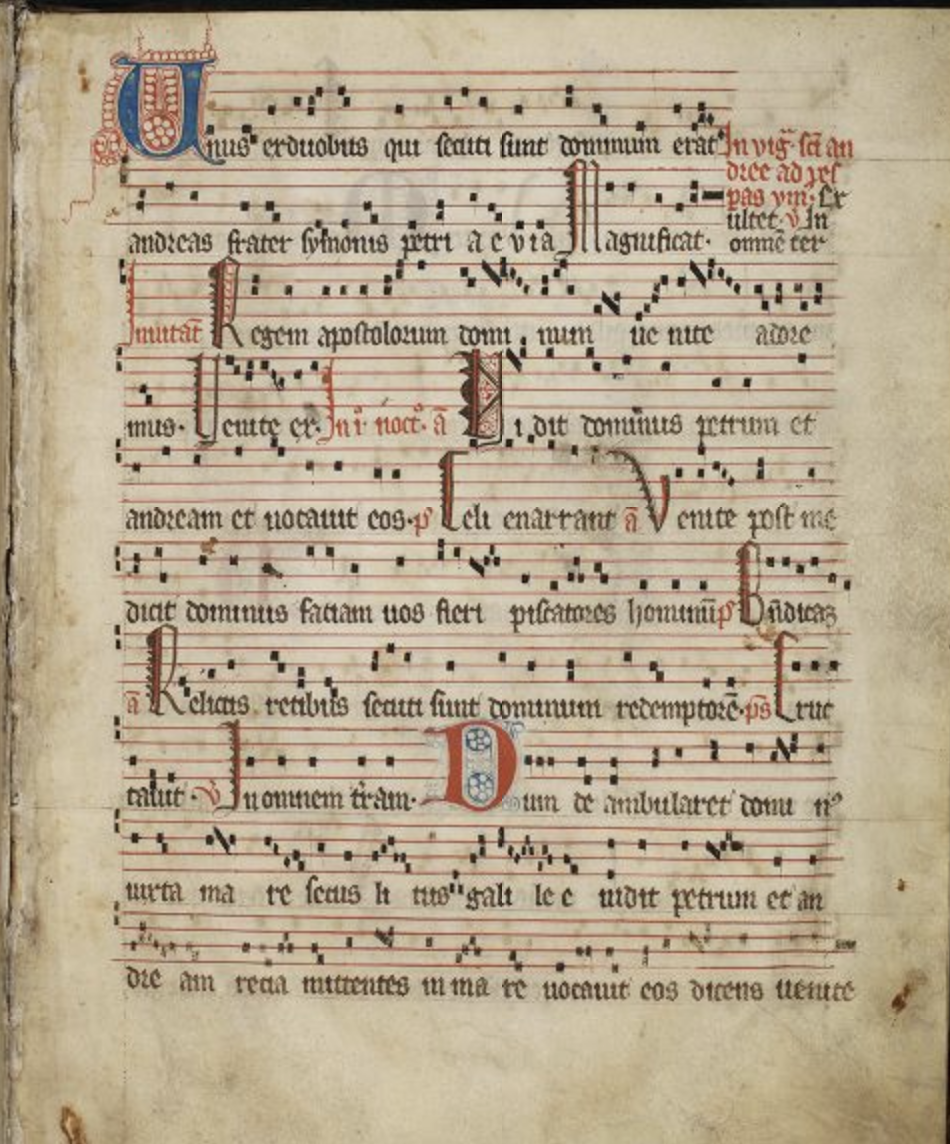 Unus ex duobus qui secuti sunt dominum erat In vig̅. sc̅i an
dree ad ves
pas ym̅. Ex
ultet. v̅. In
andreas frater symonis petri a e v i a Magnificat. omne̅ ter
Inuitat̅ Regem apostolorum domi num ue nite adore
mus. Uenite ex. In i. noct. a̅ Uidit dominus petrum et
andream et uocauit eos. p̅s Celi enarrant a̅ Venite post me
dicit dominus faciam uos fieri piscatores hominu̅ p̅s Bn̅dica̅
a̅ Relictis retibus secuti sunt dominum redemptore̅. p̅s Eruc
tauit. v̅ In omnem tr̅am. Dum de ambularet domi nꝰ
iuxta ma re secus li tus gali le e uidit petrum et an
dre am recia mittentes in ma re uocauit eos dicens uenite